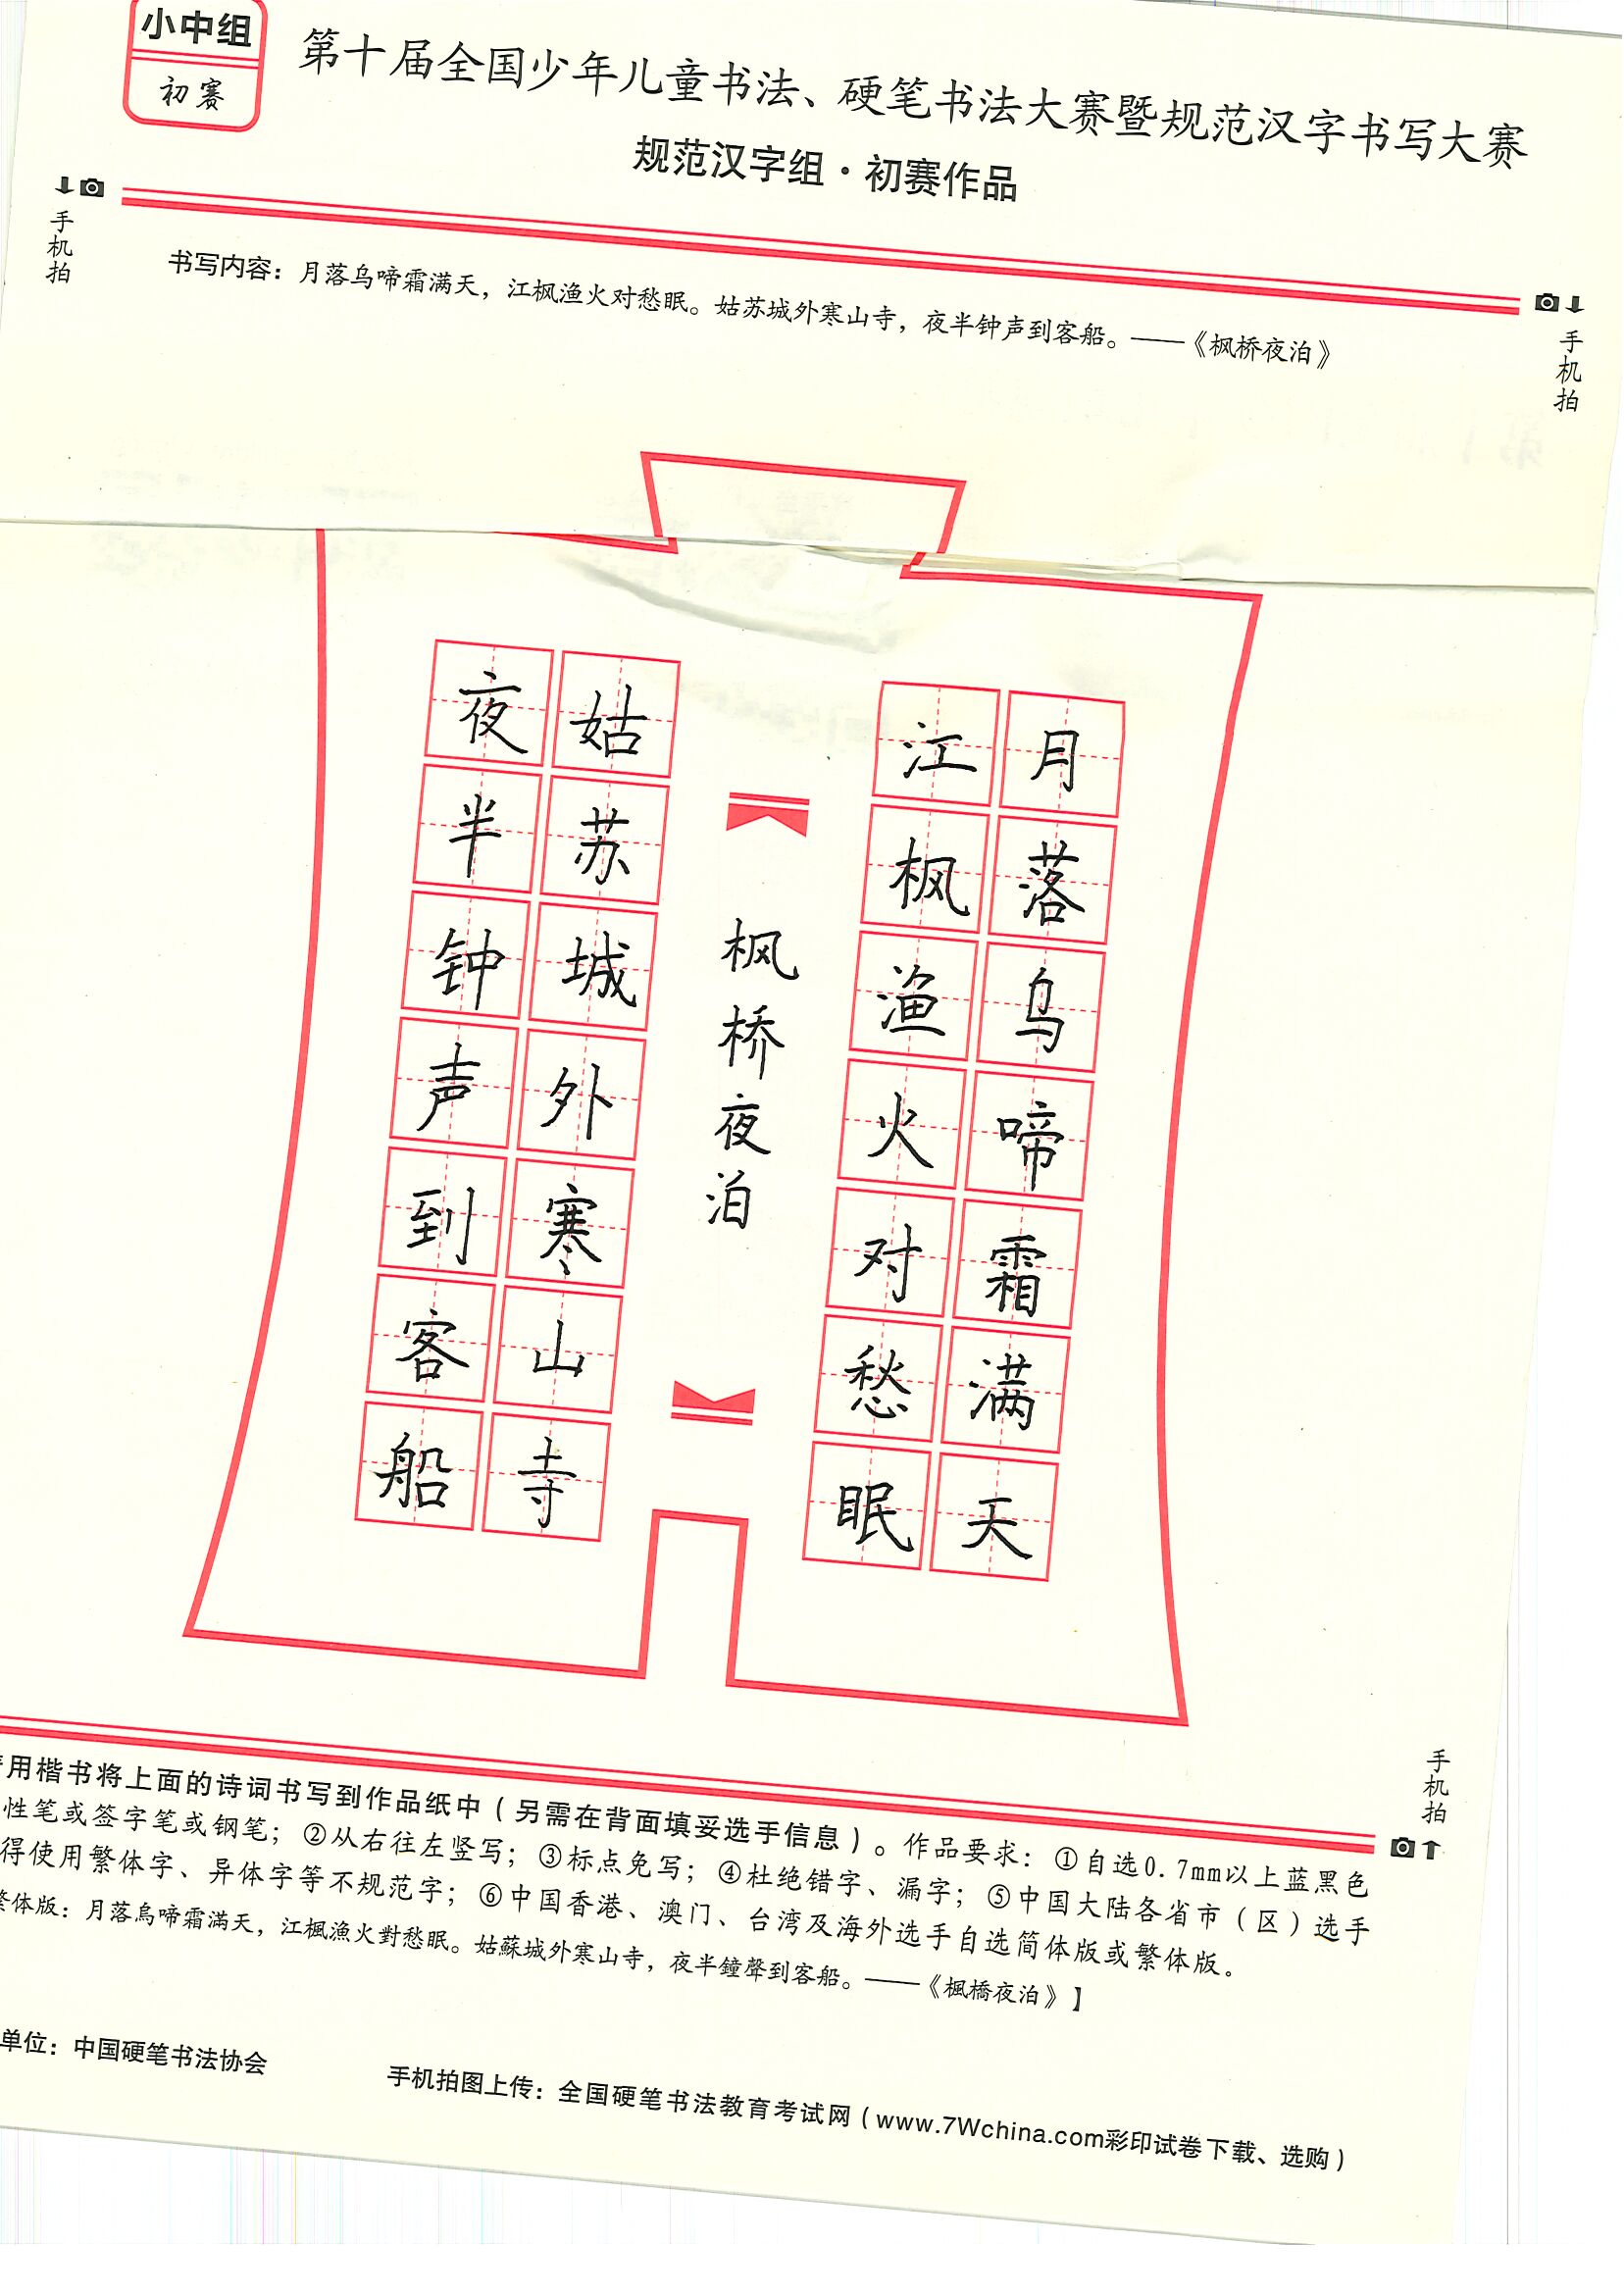 小中组
初赛
第十届全国少年儿童书法、硬笔书法大赛暨规范汉字书写大赛
规范汉字组·初赛作品
手机拍
手机拍
书写内容：月落乌啼霜满天，江枫渔火对愁眠。姑苏城外寒山寺，夜半钟声到客船。——《枫桥夜泊》
月落乌啼霜满天
江枫渔火对愁眠
枫桥夜泊
姑苏城外寒山寺
夜半钟声到客船
手机拍
用楷书将上面的诗词书写到作品纸中（另需在背面填妥选手信息）。作品要求：①自选0.7mm以上蓝黑色
性笔或签字笔或钢笔；②从右往左竖写；③标点免写；④杜绝错字、漏字；⑤中国大陆各省市（区）选手
得使用繁体字、异体字等不规范字；⑥中国香港、澳门、台湾及海外选手自选简体版或繁体版。
繁体版：月落烏啼霜滿天，江楓漁火對愁眠。姑蘇城外寒山寺，夜半鐘聲到客船。——《楓橋夜泊》】
单位：中国硬笔书法协会
手机拍图上传：全国硬笔书法教育考试网（www.7Wchina.com彩印试卷下载、选购）